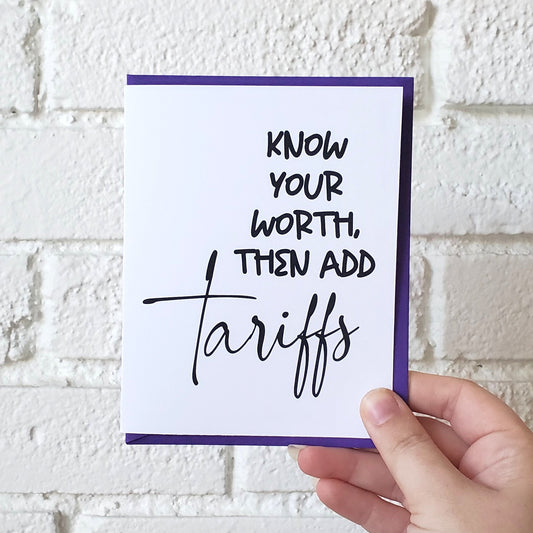 KNOW
YOUR
WORTH,
THEN ADD
tariffs